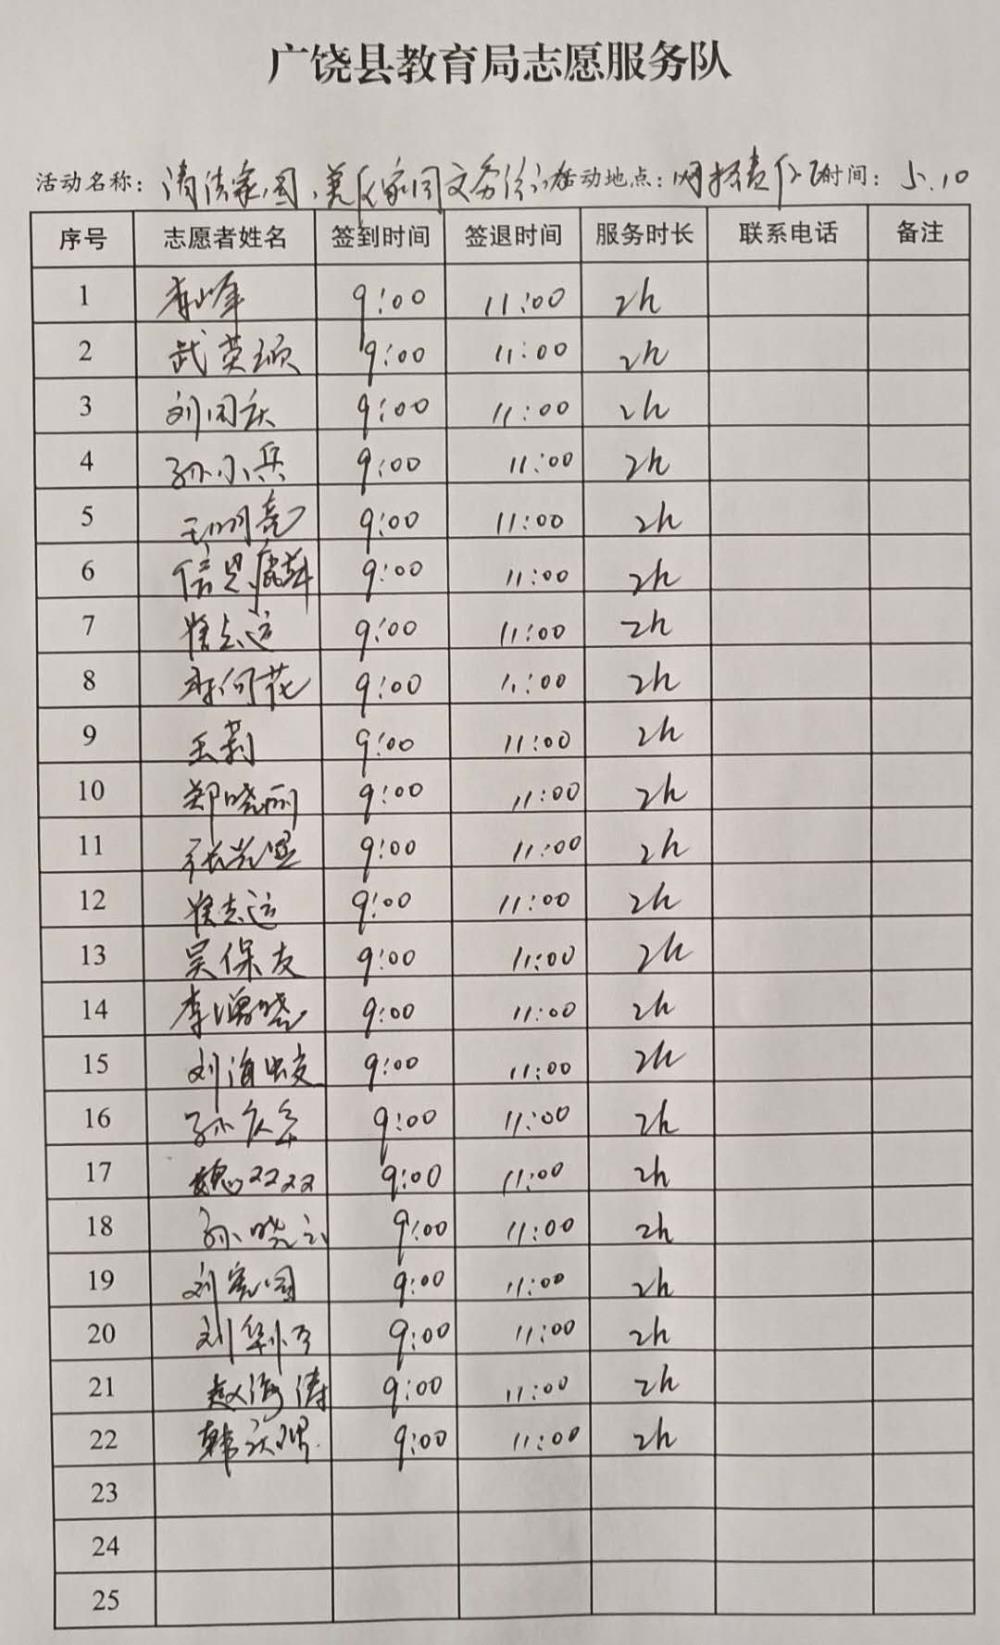 广饶县教育局志愿服务队
活动名称: 清洁家园、美化家园 活动地点: 网格责任区 时间: 5.10
序号 志愿者姓名 签到时间 签退时间 服务时长 联系电话 备注
1 李峰 9:00 11:00 2h
2 武英顺 9:00 11:00 2h
3 刘国庆 9:00 11:00 2h
4 孙小兵 9:00 11:00 2h
5 王明亮 9:00 11:00 2h
6 信思麟 9:00 11:00 2h
7 崔志远 9:00 11:00 2h
8 李何花 9:00 11:00 2h
9 王莉 9:00 11:00 2h
10 郑晓丽 9:00 11:00 2h
11 张 9:00 11:00 2h
12 崔志远 9:00 11:00 2h
13 吴保友 9:00 11:00 2h
14 李晓 9:00 11:00 2h
15 刘海蛟 9:00 11:00 2h
16 孙庆 9:00 11:00 2h
17 魏双双 9:00 11:00 2h
18 孙晓云 9:00 11:00 2h
19 刘宪国 9:00 11:00 2h
20 刘华 9:00 11:00 2h
21 赵海涛 9:00 11:00 2h
22 韩 9:00 11:00 2h
23
24
25